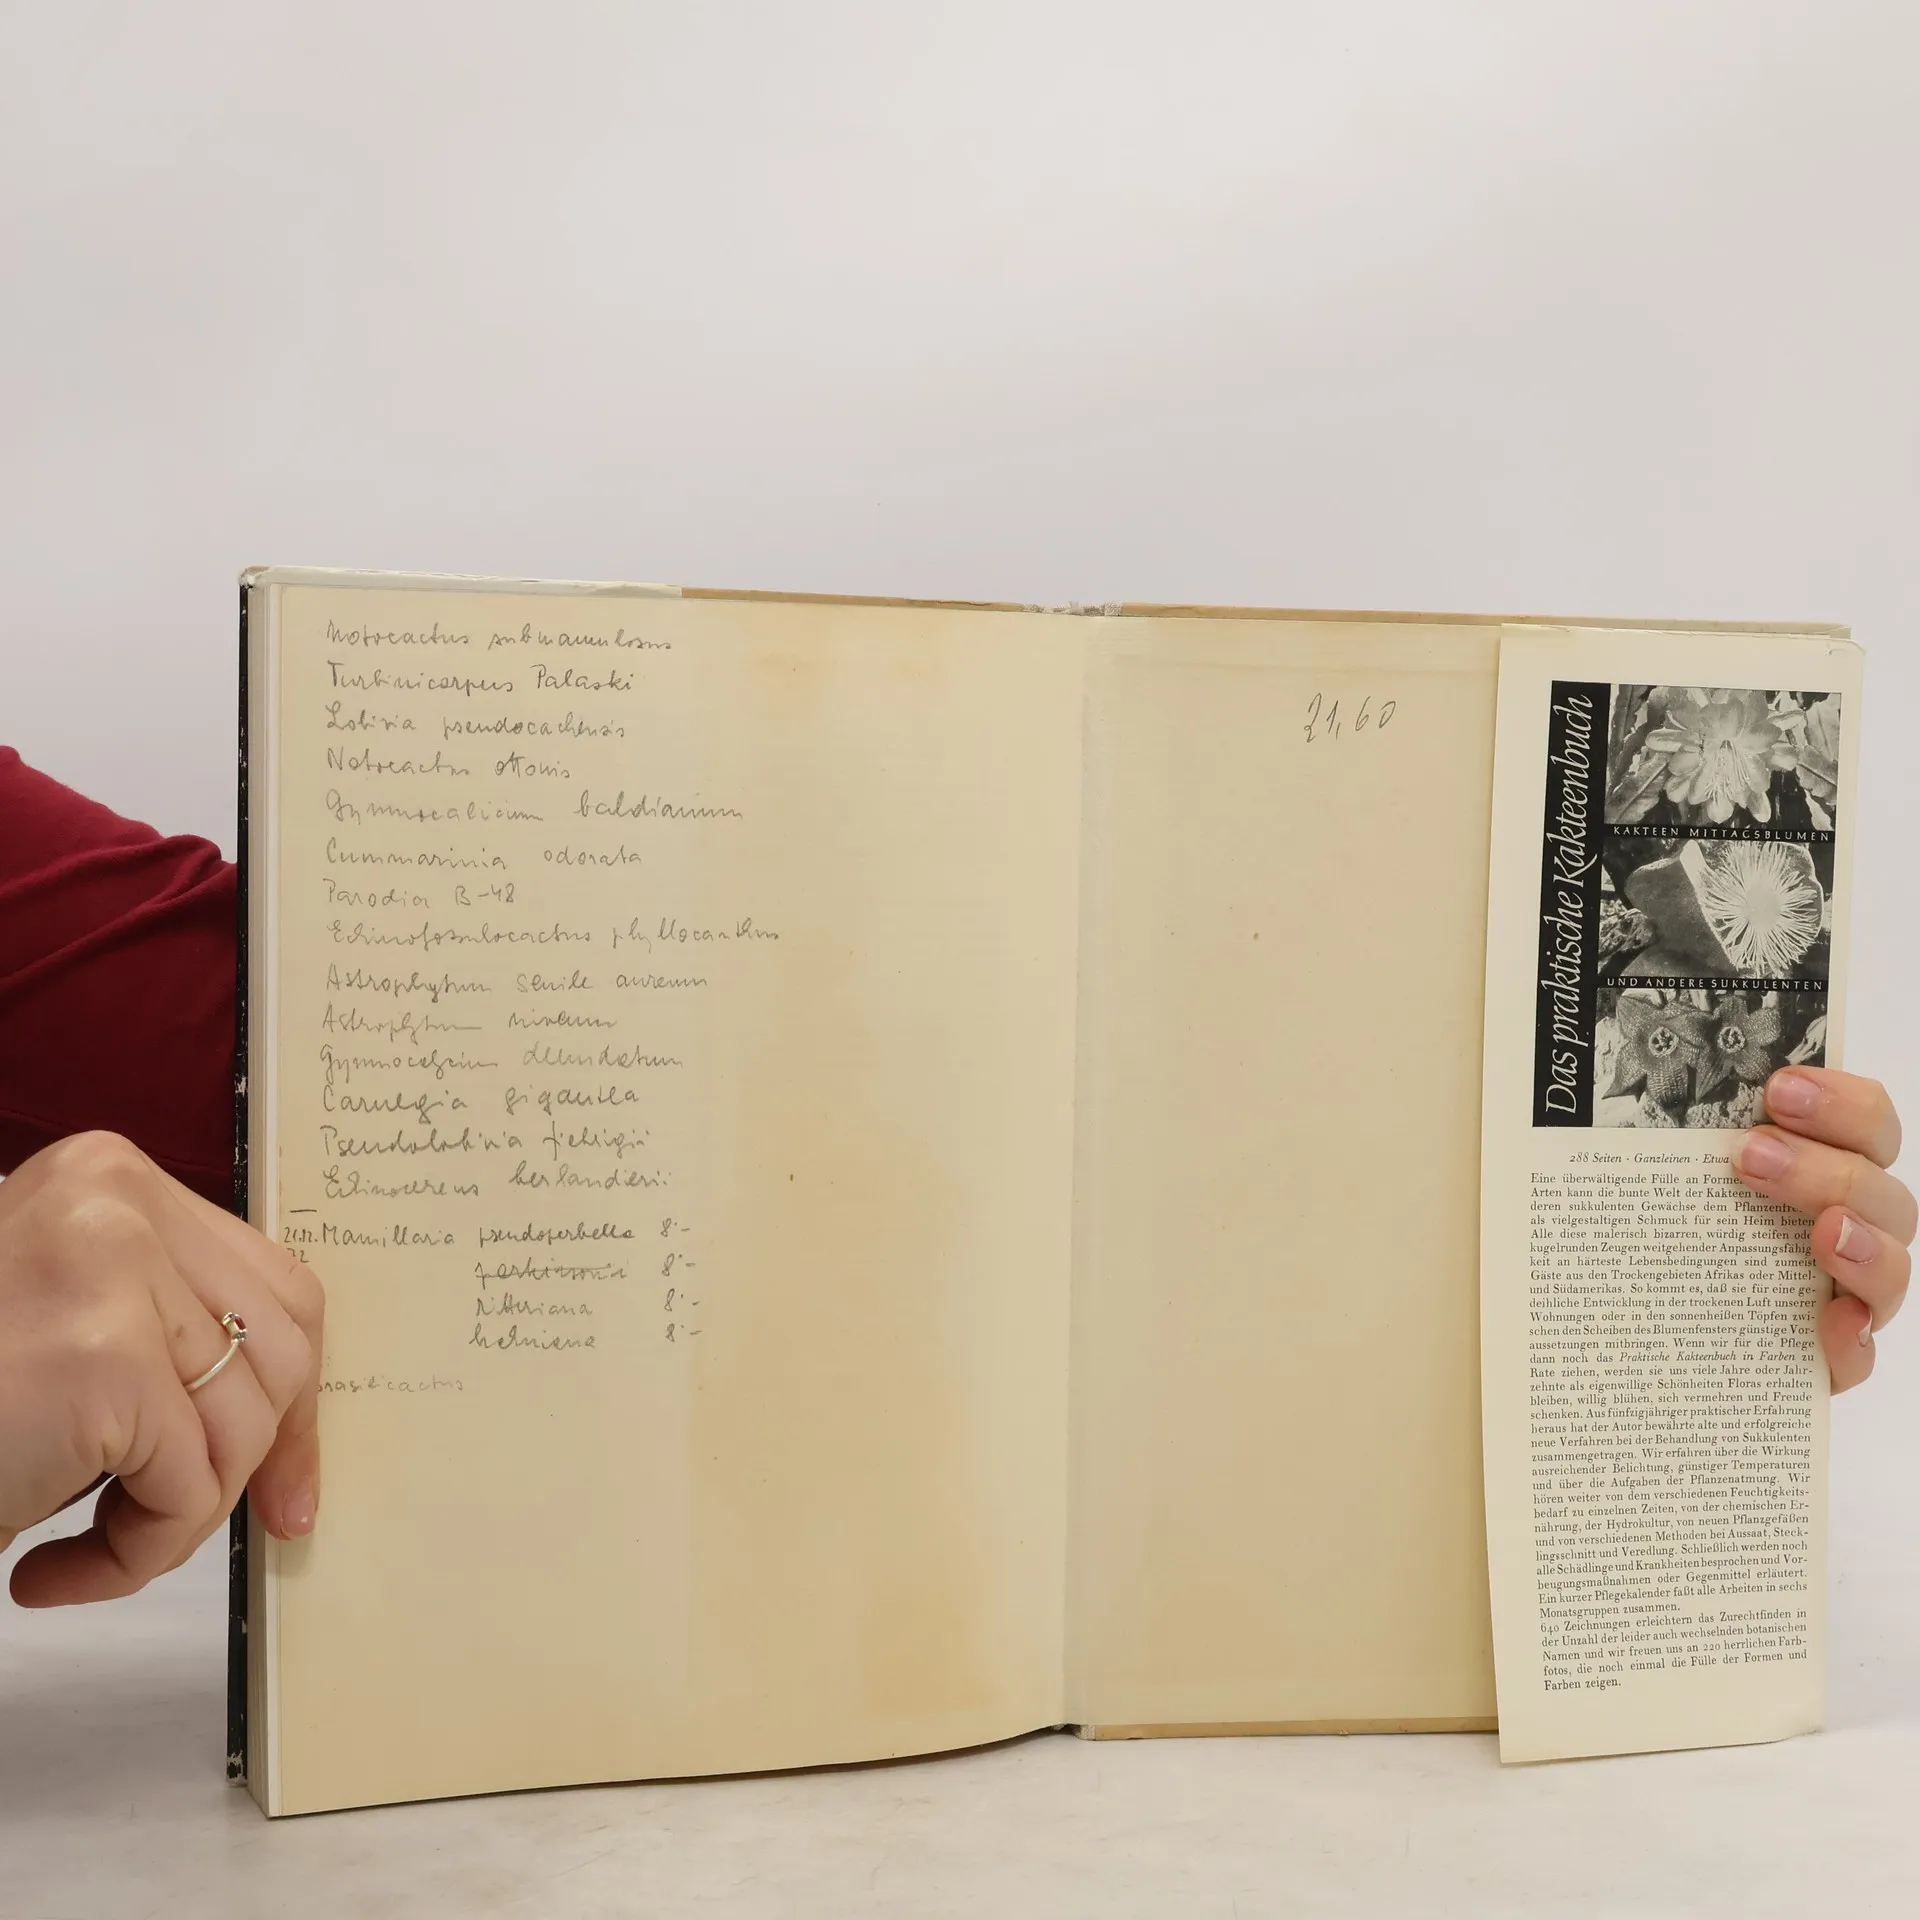 Notocactus submamulosus
Turbinicarpus Palaski
Lobivia pseudocachensis
Notocactus ottonis
Gymnocalicium baldianum
Cummarinia odorata
Parodia B-48
Echinofosulocactus phyllocanthus
Astrophytum senile aureum
Astrophytum niveum
Gymnocalycium denudatum
Carnegia gigantea
Pseudolobivia
Echinocereus berlandieri
21.12. Mamillaria pseudoperbella 8·-
72
parkinsonii 8·-
ritteriana 8·-
hahniana 8·-
brasilicactus
21,60
Das praktische Kakteenbuch
KAKTEEN MITTAGSBLUMEN
UND ANDERE SUKKULENTEN
288 Seiten · Ganzleinen · Etwa
Eine überwältigende Fülle an Formen
Arten kann die bunte Welt der Kakteen
deren sukkulenten Gewächse dem
als vielgestaltigen Schmuck für sein Heim bieten
Alle diese malerisch bizarren, würdig steifen ode
kugelrunden Zeugen weitgehender Anpassungsfähig
keit an härteste Lebensbedingungen sind zumeist
Gäste aus den Trockengebieten Afrikas oder Mittel-
und Südamerikas. So kommt es, daß sie für eine ge-
deihliche Entwicklung in der trockenen Luft unserer
Wohnungen oder in den sonnenheißen Töpfen zwi-
schen den Scheiben des Blumenfensters günstige Vor-
aussetzungen mitbringen. Wenn wir für die Pflege
dann noch das Praktische Kakteenbuch in Farben zu
Rate ziehen, werden sie uns viele Jahre oder Jahr-
zehnte als eigenwillige Schönheiten Floras erhalten
bleiben, willig blühen, sich vermehren und Freude
schenken. Aus fünfzigjähriger praktischer Erfahrung
heraus hat der Autor bewährte alte und erfolgreiche
neue Verfahren bei der Behandlung von Sukkulenten
zusammengetragen. Wir erfahren über die Wirkung
ausreichender Belichtung, günstiger Temperaturen
und über die Aufgaben der Pflanzenatmung. Wir
hören weiter von dem verschiedenen Feuchtigkeits-
bedarf zu einzelnen Zeiten, von der chemischen Er-
nährung, der Hydrokultur, von neuen Pflanzgefäßen
und von verschiedenen Methoden bei Aussaat, Steck-
lingsschnitt und Veredlung. Schließlich werden noch
alle Schädlinge und Krankheiten besprochen und Vor-
beugungsmaßnahmen oder Gegenmittel erläutert.
Ein kurzer Pflegekalender faßt alle Arbeiten in sechs
Monatsgruppen zusammen.
640 Zeichnungen erleichtern das Zurechtfinden in
der Unzahl der leider auch wechselnden botanischen
Namen und wir freuen uns an 220 herrlichen Farb-
fotos, die noch einmal die Fülle der Formen und
Farben zeigen.